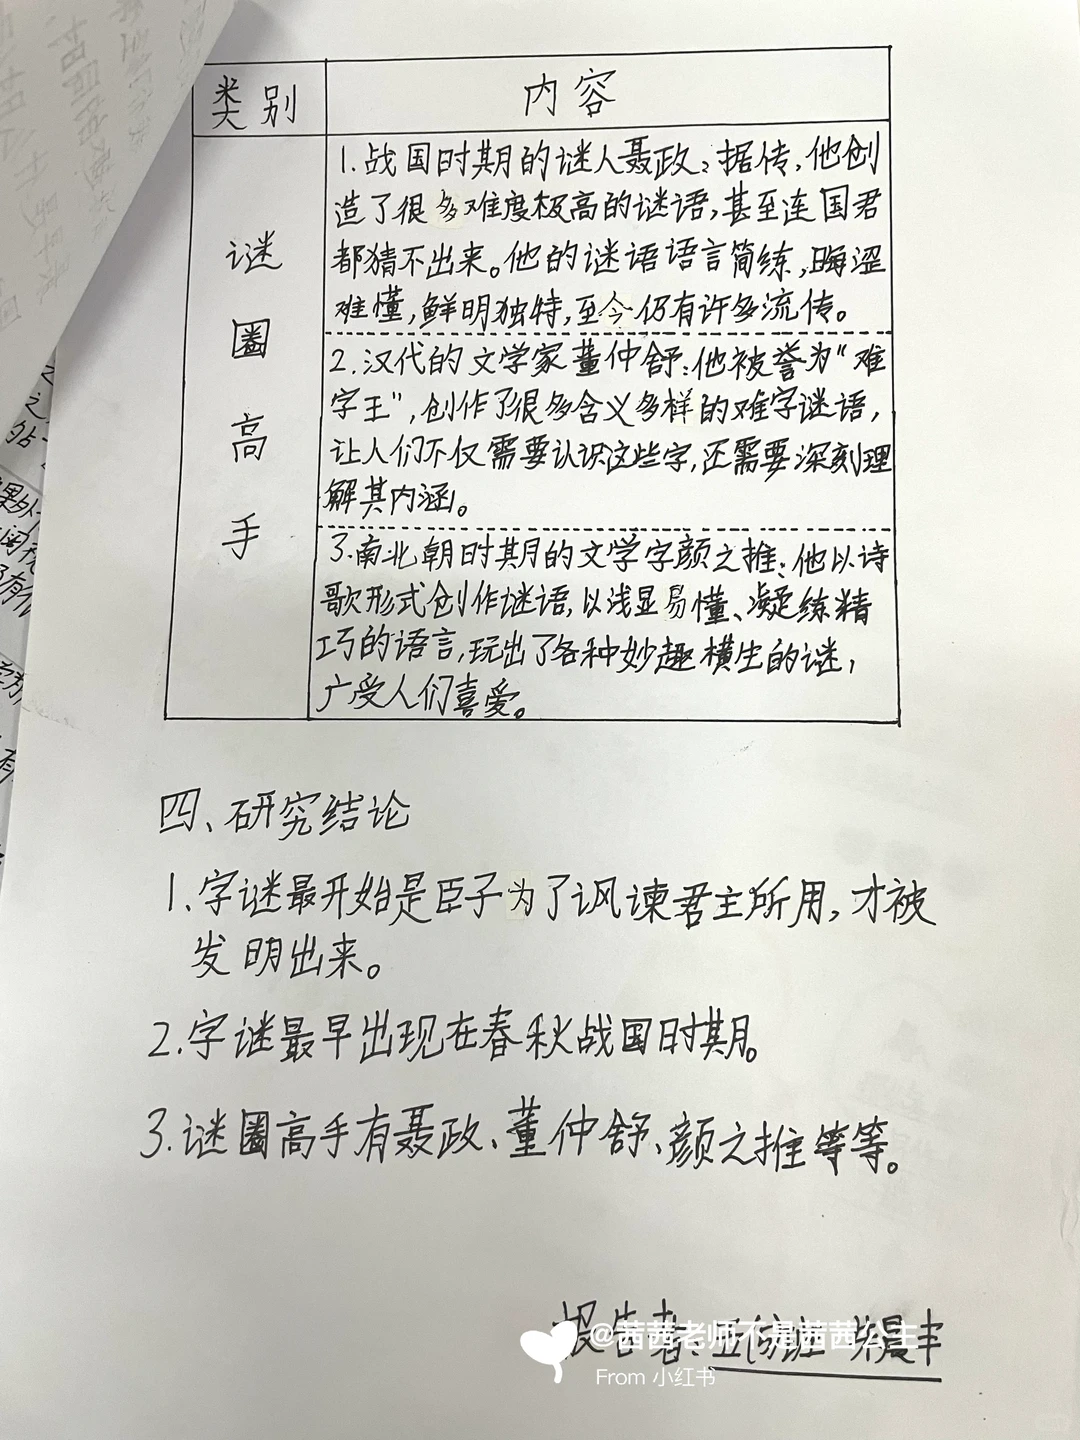 类别
内容
谜
圈
高
手
1.战国时期的谜人聂政：据传，他创
造了很多难度极高的谜语，甚至连国君
都猜不出来。他的谜语语言简练，晦涩
难懂，鲜明独特，至今仍有许多流传。
2.汉代的文学家董仲舒：他被誉为“难
字王”，创作了很多含义多样的难字谜语，
让人们不仅需要认识这些字，还需要深刻理
解其内涵。
3.南北朝时期的文学字颜之推：他以诗
歌形式创作谜语，以浅显易懂、凝练精
巧的语言，玩出了各种妙趣横生的谜，
广受人们喜爱。
四、研究结论
1.字谜最开始是臣子为了讽谏君主所用，才被
发明出来。
2.字谜最早出现在春秋战国时期。
3.谜圈高手有聂政、董仲舒、颜之推等等。
报告者：
@茜茜老师不是茜茜公主
From 小红书